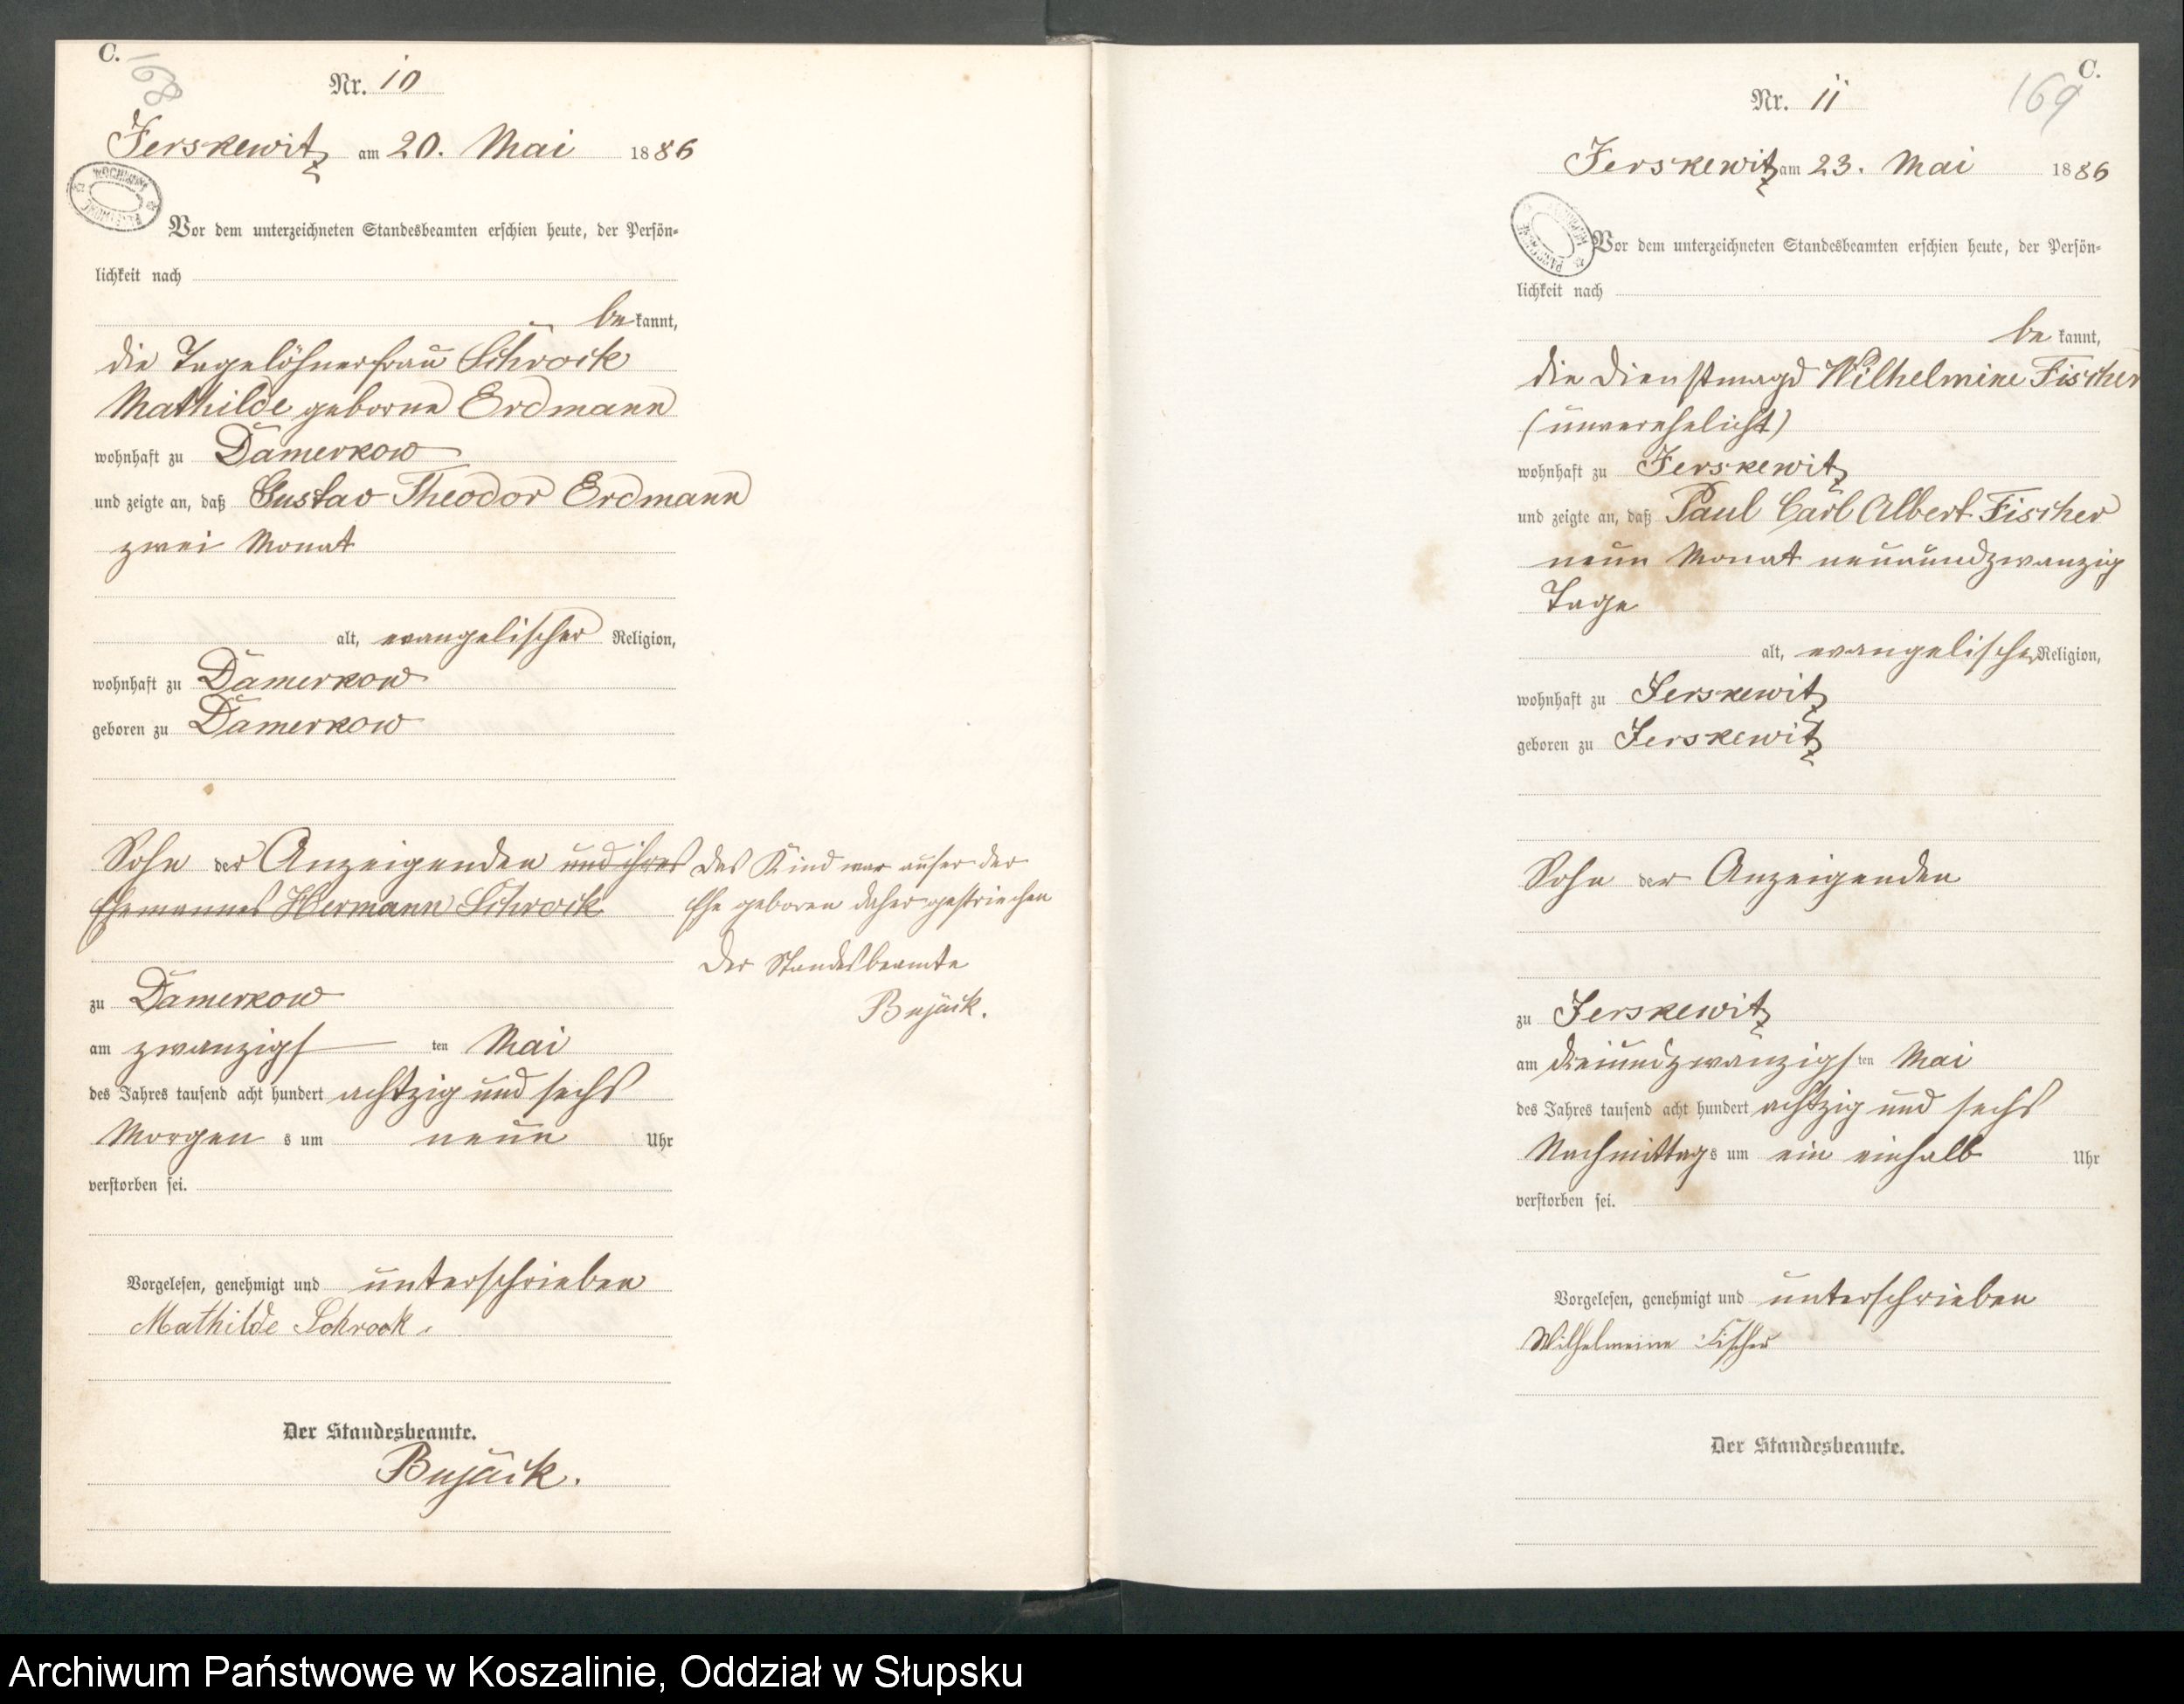 C.
168
Nr. 10
Jerskewitz am 20. Mai 1886
Vor dem unterzeichneten Standesbeamten erschien heute, der Persön-
lichkeit nach
bekannt,
die Tagelöhnerfrau Schrock
Mathilde geborne Erdmann
wohnhaft zu Damerkow
und zeigte an, daß Gustav Theodor Erdmann
zwei Monat
alt, evangelischer Religion,
wohnhaft zu Damerkow
geboren zu Damerkow
Sohn der Anzeigenden und ihres
Ehemannes Hermann Schrock
das Kind war außer der
Ehe geboren daher gestrichen
Der Standesbeamte
Bujack.
zu Damerkow
am zwanzigsten Mai
des Jahres tausend acht hundert achtzig und sechs
Morgens um neun Uhr
verstorben sei.
Vorgelesen, genehmigt und unterschrieben
Mathilde Schrock.
Der Standesbeamte.
Bujack.
C.
169
Nr. 11
Jerskewitz am 23. Mai 1886
Vor dem unterzeichneten Standesbeamten erschien heute, der Persön-
lichkeit nach
bekannt,
die Dienstmagd Wilhelmine Fischer
(unverehelicht)
wohnhaft zu Jerskewitz
und zeigte an, daß Paul Carl Albert Fischer
neun Monat neunundzwanzig
Tage
alt, evangelischer Religion,
wohnhaft zu Jerskewitz
geboren zu Jerskewitz
Sohn der Anzeigenden
zu Jerskewitz
am dreiundzwanzigsten Mai
des Jahres tausend acht hundert achtzig und sechs
Nachmittags um ein einhalb Uhr
verstorben sei.
Vorgelesen, genehmigt und unterschrieben
Wilhelmine Fischer
Der Standesbeamte.
Archiwum Państwowe w Koszalinie, Oddział w Słupsku